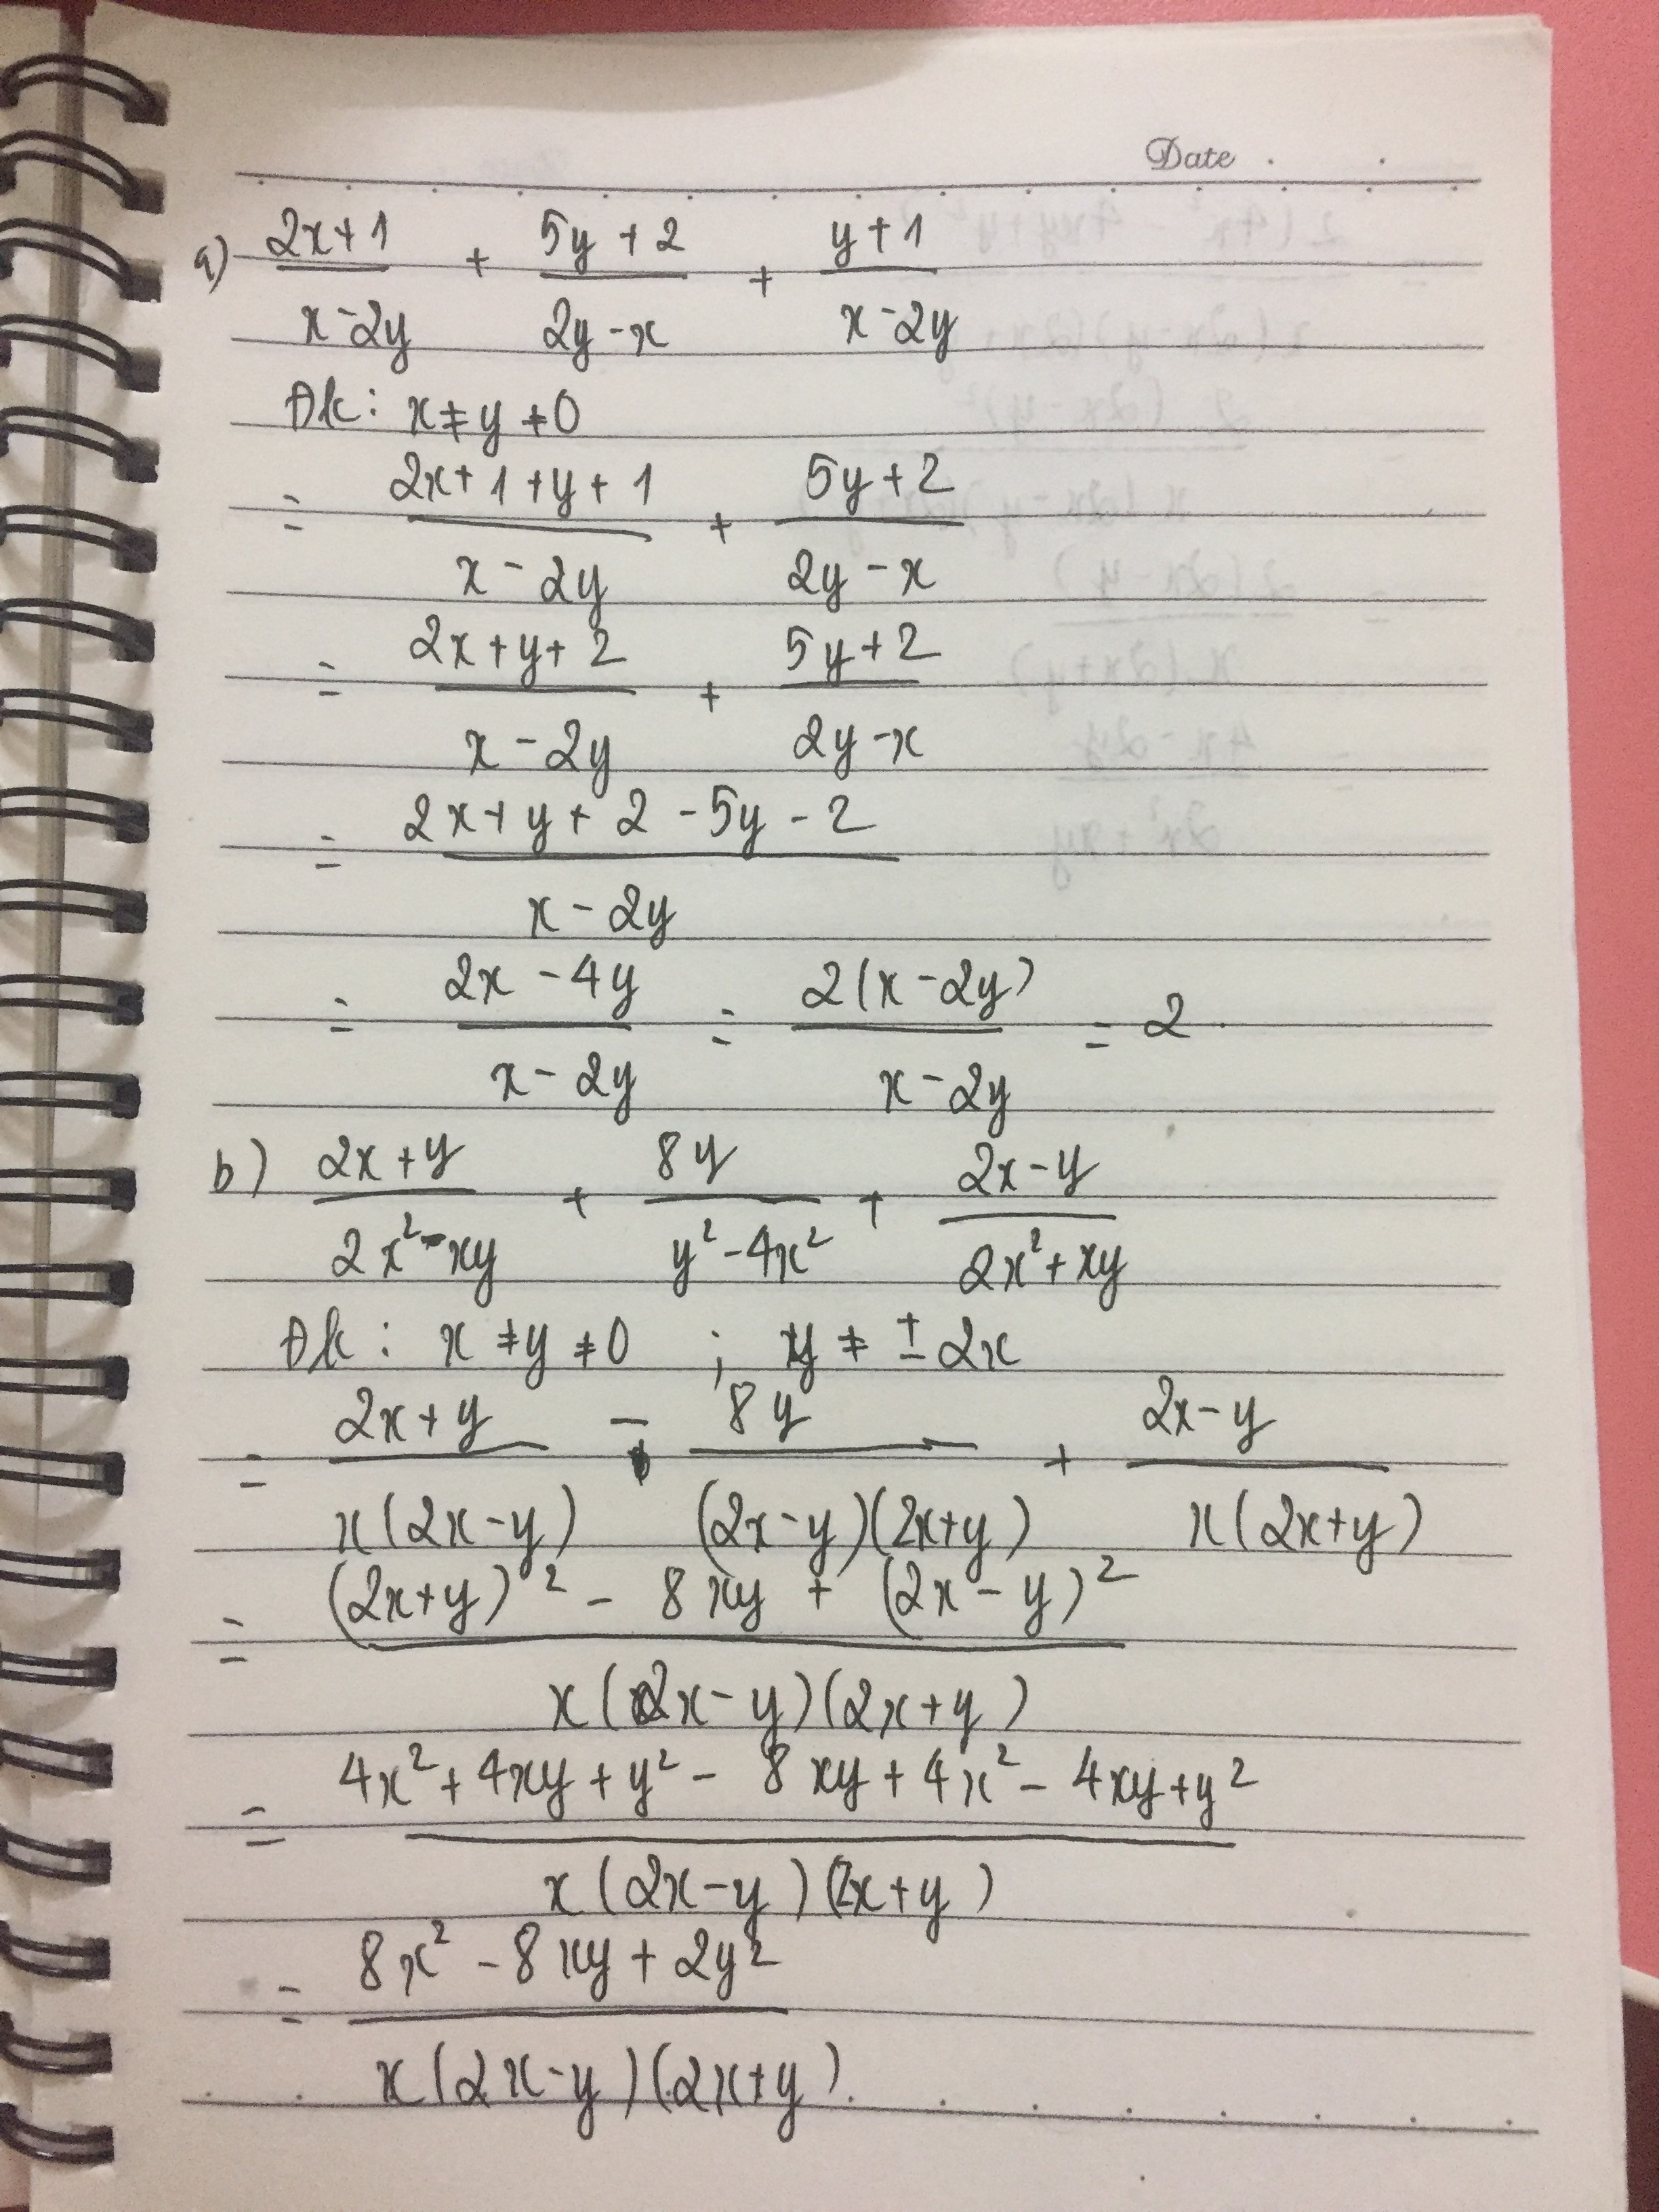 Date
a) (2x+1)/(x-2y) + (5y+2)/(2y-x) + (y+1)/(x-2y)
Đk: x≠y≠0
= (2x+1+y+1)/(x-2y) + (5y+2)/(2y-x)
= (2x+y+2)/(x-2y) + (5y+2)/(2y-x)
= (2x+y+2-5y-2)/(x-2y)
= (2x-4y)/(x-2y) = 2(x-2y)/(x-2y) = 2
b) (2x+y)/(2x²-xy) + 8y/(y²-4x²) + (2x-y)/(2x²+xy)
Đk: x≠y≠0 ; y≠±2x
= (2x+y)/(x(2x-y)) - 8y/((2x-y)(2x+y)) + (2x-y)/(x(2x+y))
= ((2x+y)² - 8xy + (2x-y)²)/(x(2x-y)(2x+y))
= (4x²+4xy+y²-8xy+4x²-4xy+y²)/(x(2x-y)(2x+y))
= (8x²-8xy+2y²)/(x(2x-y)(2x+y))